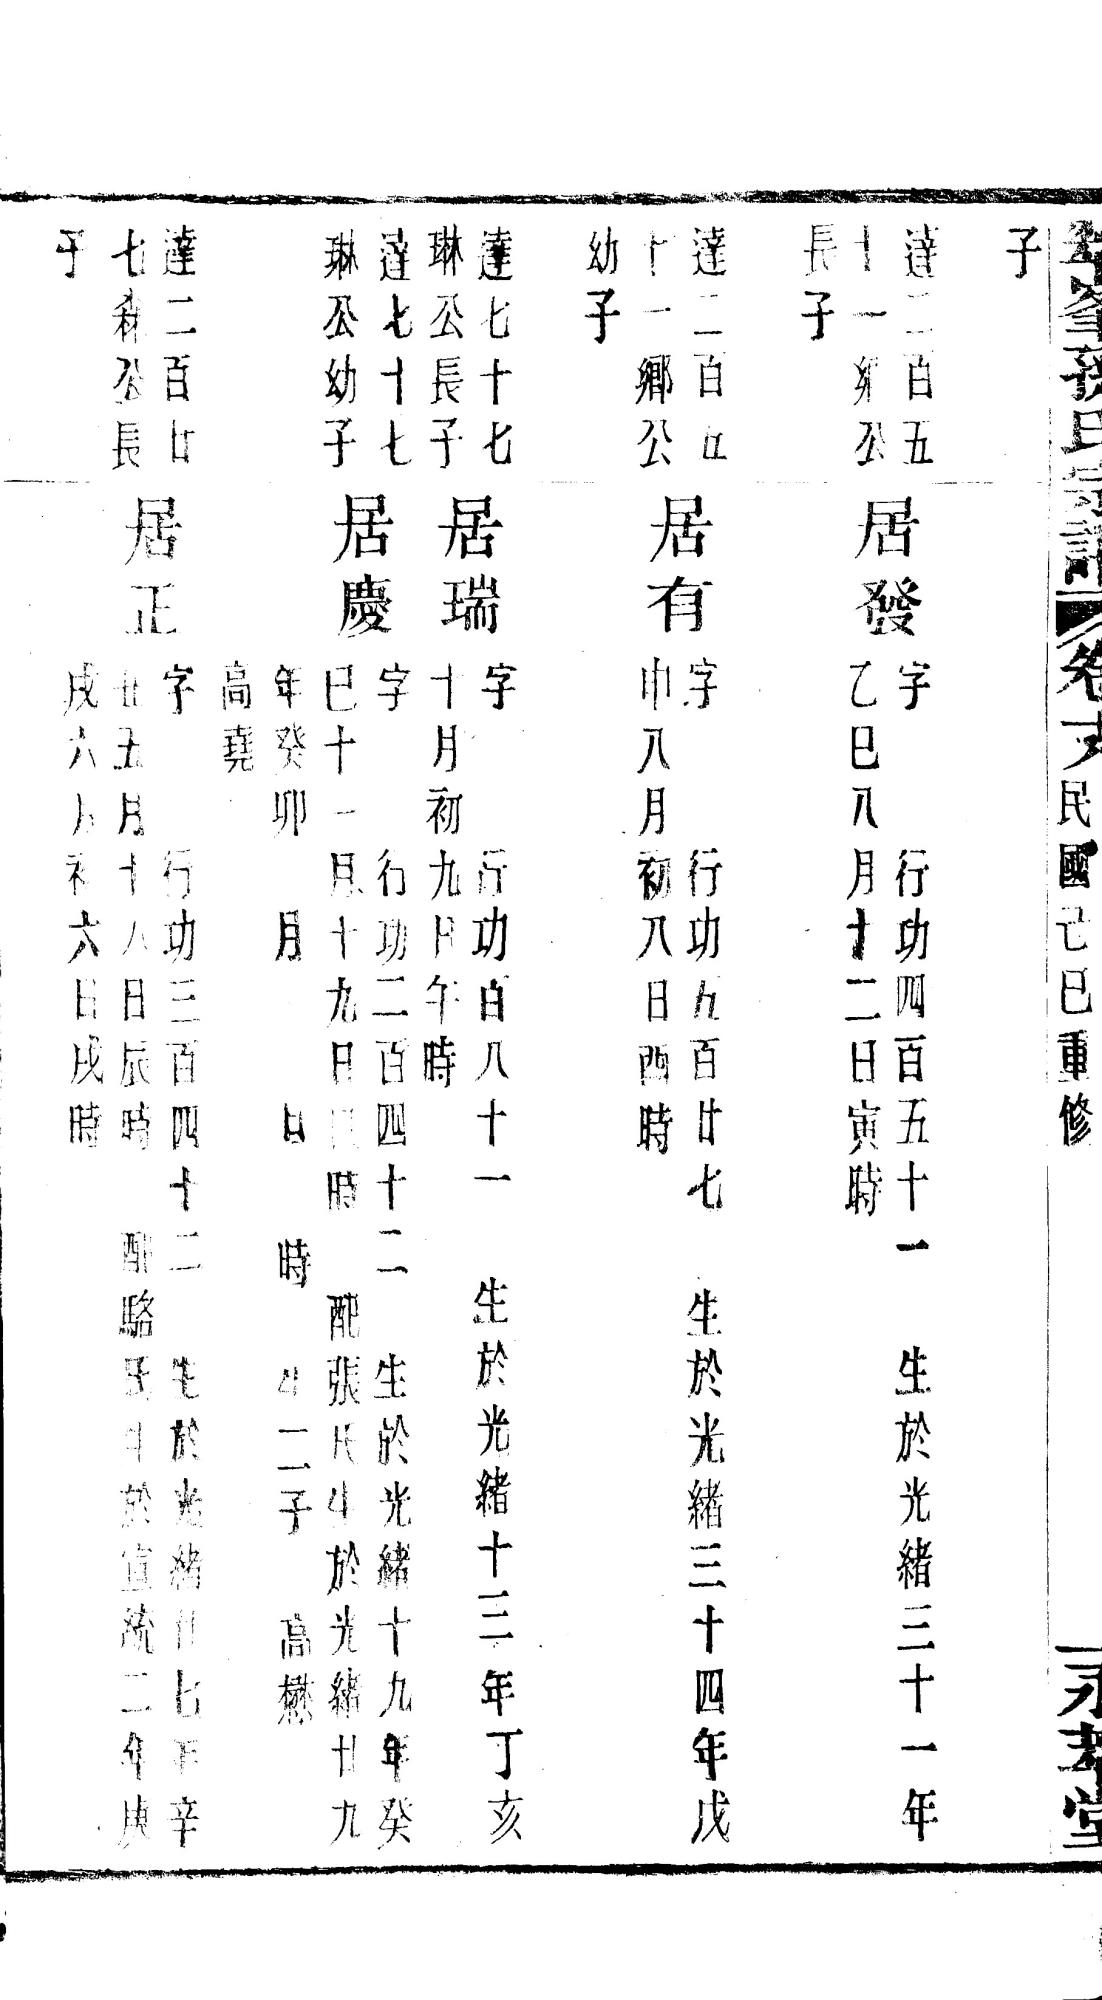 孫氏宗譜 卷 民國己巳重修 永
子
達二百五
十一鄉公
長子
居發
字 行功四百五十一 生於光緒三十一年
乙巳八月十二日寅時
達二百五
十一鄉公
幼子
居有
字 行功五百廿七 生於光緒三十四年戊
申八月初八日酉時
達七十七
琳公長子
居瑞
字 行功百八十一 生於光緒十三年丁亥
十月初九日午時
達七十七
琳公幼子
居慶
字 行功二百四十二 生於光緒十九年癸
巳十一月十九日時 配張氏生於光緒廿九
年癸卯 月 日 時 生二子 高懋
高堯
達二百廿
七森公長
子
居正
字 行功三百四十二 生於光緒廿七年辛
丑五月十八日辰時 配駱氏生於宣統二年庚
戌六月初六日戌時